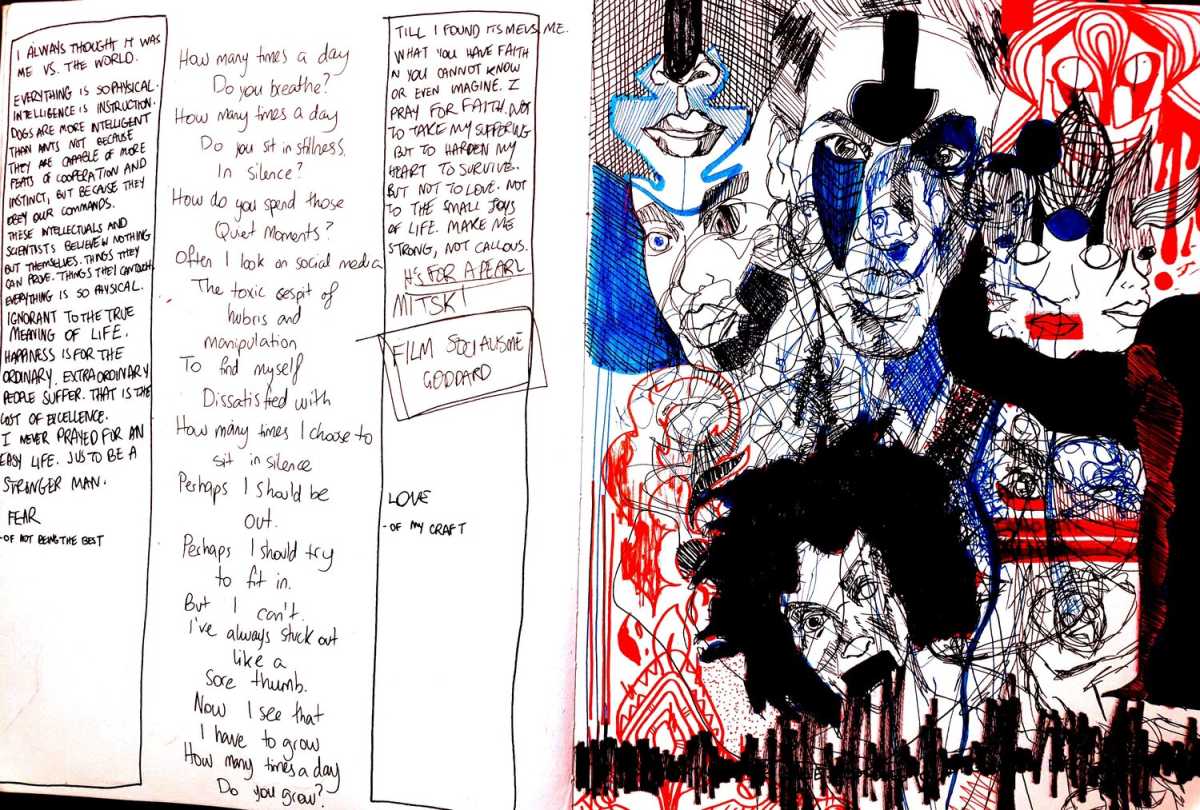 I ALWAYS THOUGHT IT WAS
ME VS. THE WORLD.
EVERYTHING IS SO PHYSICAL.
INTELLIGENCE IS INSTRUCTION.
DOGS ARE MORE INTELLIGENT
THAN ANTS NOT BECAUSE
THEY ARE CAPABLE OF MORE
FEATS OF COOPERATION AND
INSTINCT, BUT BECAUSE THEY
OBEY OUR COMMANDS.
THESE INTELLECTUALS AND
SCIENTISTS BELIEVE IN NOTHING
BUT THEMSELVES. THINGS THEY
CAN PROVE. THINGS THEY CAN TOUCH.
EVERYTHING IS SO PHYSICAL.
IGNORANT TO THE TRUE
MEANING OF LIFE.
HAPPINESS IS FOR THE
ORDINARY. EXTRAORDINARY
PEOPLE SUFFER. THAT IS THE
COST OF EXCELLENCE.
I NEVER PRAYED FOR AN
EASY LIFE. JUS TO BE A
STRONGER MAN.
FEAR
- OF NOT BEING THE BEST
How many times a day
Do you breathe?
How many times a day
Do you sit in stillness.
In silence?
How do you spend those
Quiet Moments?
Often I look on social media
The toxic cespit of
hubris and
manipulation
To find myself
Dissatisfied with
How many times I choose to
sit in silence
Perhaps I should be
out.
Perhaps I should try
to fit in.
But I can't.
I've always stuck out
like a
sore thumb.
Now I see that
I have to grow
How many times a day
Do you grow?
TILL I FOUND ITS ME VS. ME.
WHAT YOU HAVE FAITH
IN YOU CANNOT KNOW
OR EVEN IMAGINE. I
PRAY FOR FAITH. NOT
TO TAKE MY SUFFERING
BUT TO HARDEN MY
HEART TO SURVIVE.
BUT NOT TO LOVE. NOT
TO THE SMALL JOYS
OF LIFE. MAKE ME
STRONG, NOT CALLOUS.
A PEARL
MITSKI
FILM SOCIALISME
GODDARD
LOVE
- OF MY CRAFT